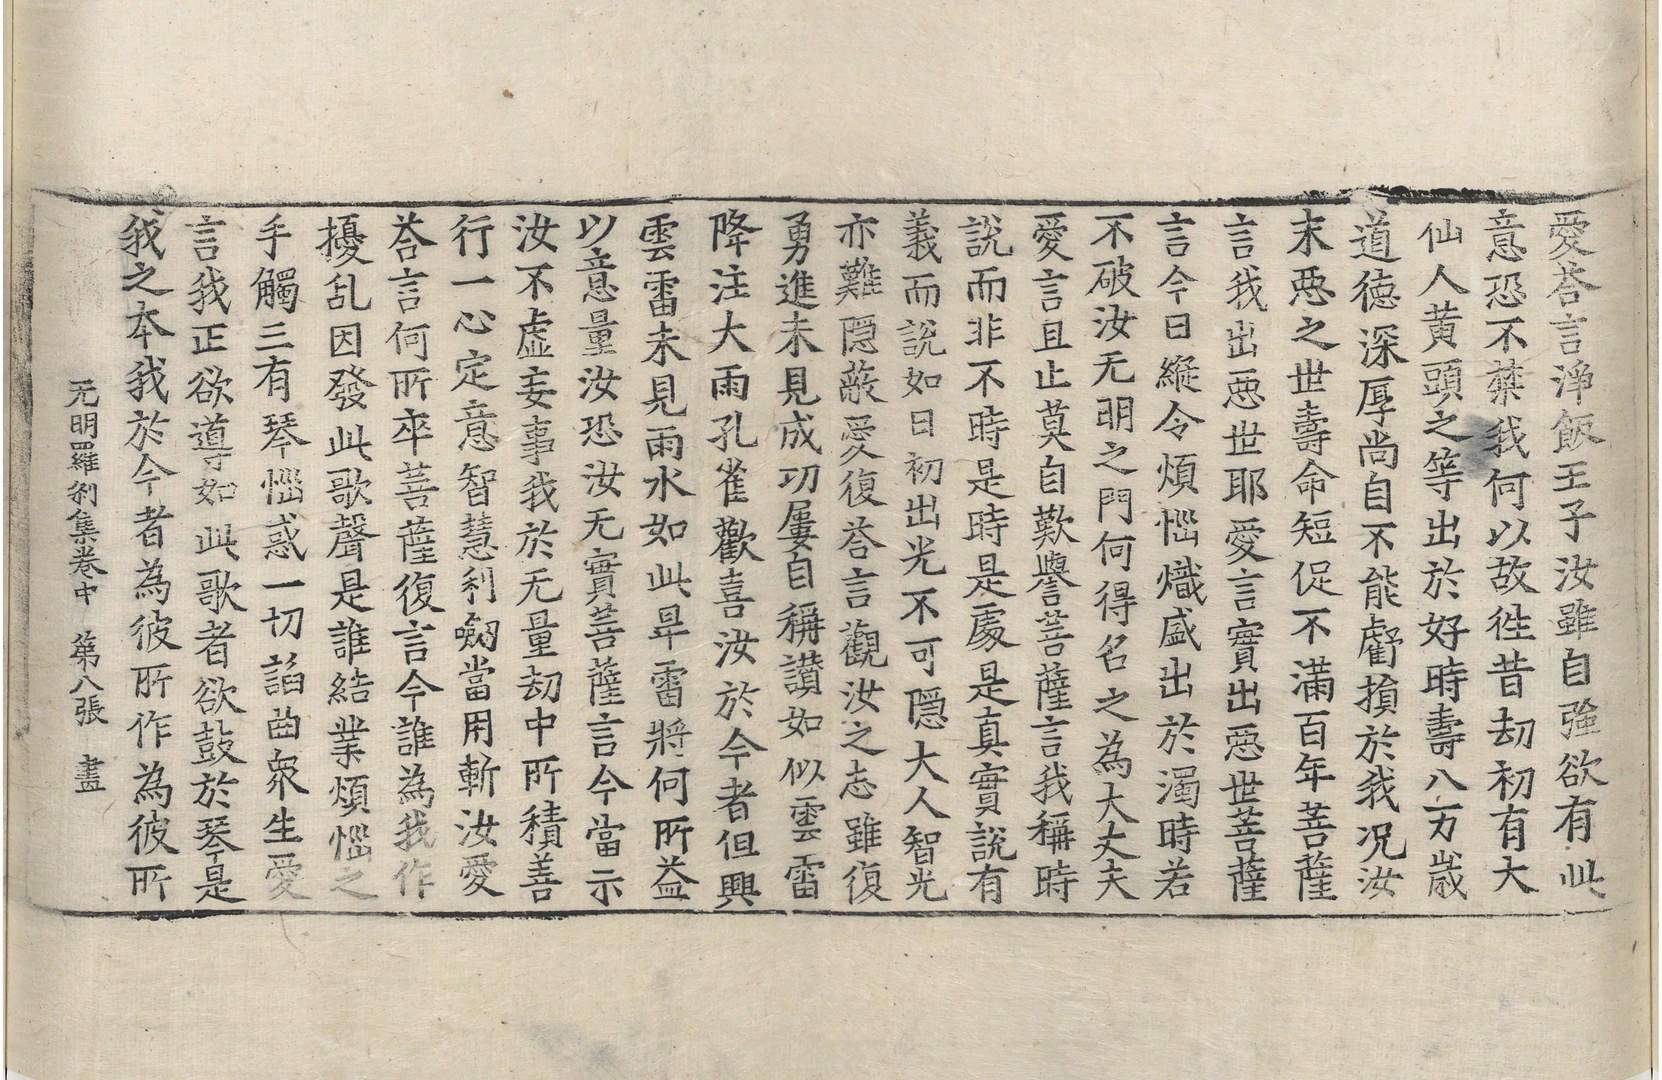 愛荅言淨飯王子汝雖自強欲有此
意恐不蘂我何以故徃昔刧初有大
仙人黄頭之等出於好時壽八万歳
道徳深厚尚自不能虧損於我况汝
末惡之世壽命短促不滿百年菩薩
言我出惡世耶愛言實出惡世菩薩
言今日縱令煩惱熾盛出於濁時若
不破汝无明之門何得名之為大丈夫
愛言且止莫自歎譽菩薩言我稱時
說而非不時是時是處是真實說有
義而說如日初出光不可隱大人智光
亦難隱蔽愛復荅言觀汝之志雖復
勇進未見成功屢自稱讃如似雲雷
降注大雨孔雀歡喜汝於今者但興
雲雷未見雨水如此旱雷將何所益
以意量汝恐汝无實菩薩言今當示
汝不虛妄事我於无量刧中所積善
行一心定意智慧利劔當用斬汝愛
荅言何所卒菩薩復言今誰為我作
擾乱因發此歌聲是誰結業煩惱之
手觸三有琴惱惑一切諂曲衆生愛
言我正欲導如此歌者欲鼓於琴是
我之本我於今者為彼所作為彼所
无明羅刹集卷中 第八張 晝